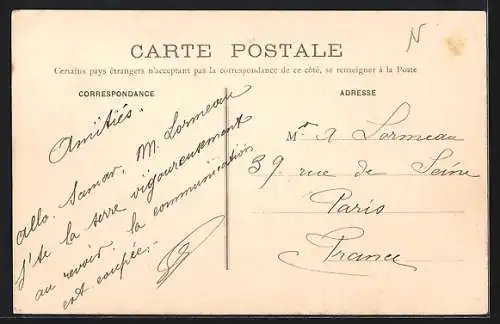 N
CARTE POSTALE
Certains pays étrangers n'acceptant pas la correspondance de ce côté, se renseigner à la Poste
CORRESPONDANCE
Amitiés.
Allo. Samar. M. Lormeau
J'te la serre vigoureusement
au revoir. la communication
est coupée.-
ADRESSE
Mr A Lormeau
39 rue de Seine
Paris
France